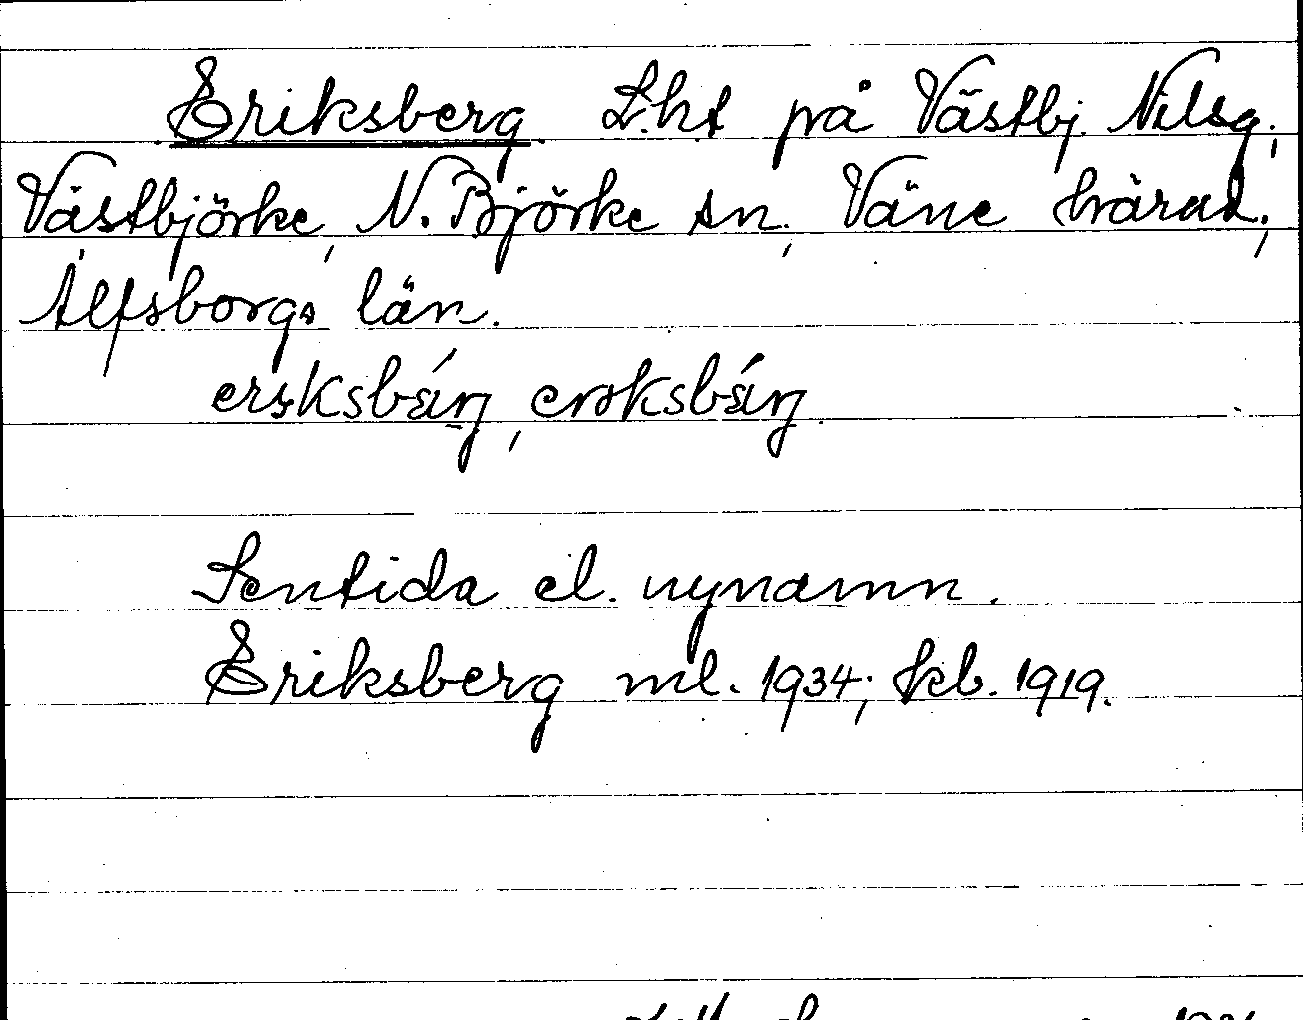 Eriksberg L.ht på Västbj. Nilsg.,
Västbjörke, N. Björke sn, Väne härad,
Älfsborgs län.
Sentida el. nynamn.
Eriksberg ml. 1934; kb. 1919.